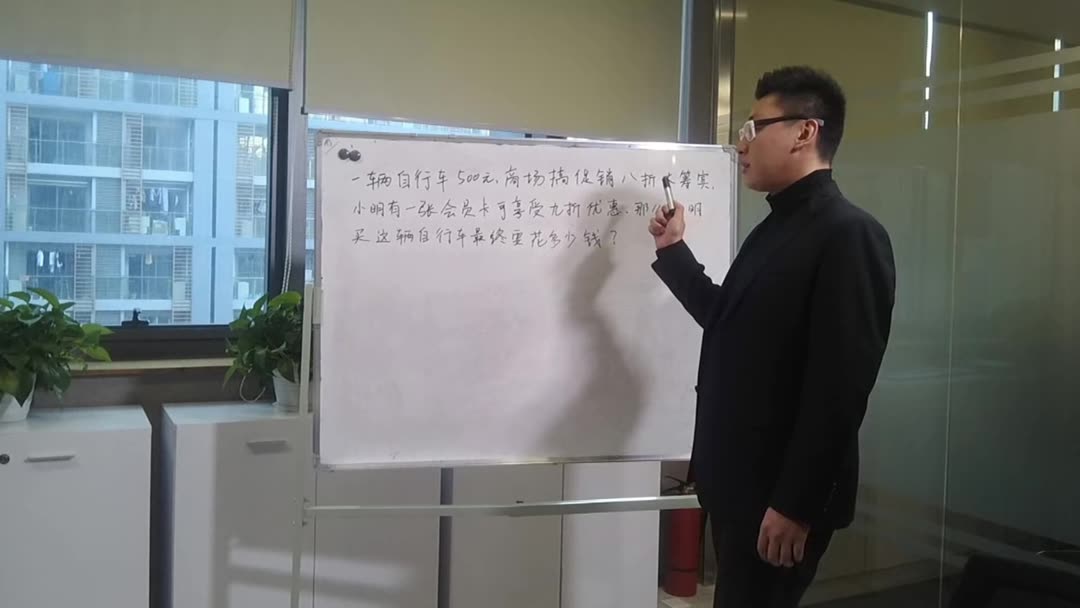 一辆自行车500元，商场搞促销八折大筹宾，
小明有一张会员卡可享受九折优惠，那 明
买这辆自行车最终要花多少钱？